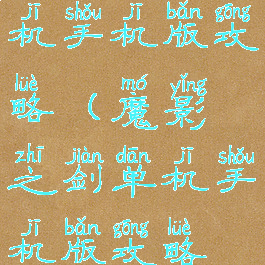 jī shǒu jī bǎn gōng
机手机版攻
lüè mó yǐng
略(魔影
zhī jiàn dān jī shǒu
之剑单机手
jī bǎn gōng lüè
机版攻略